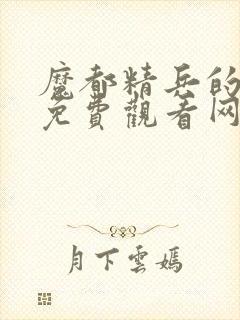 魔都精兵的
免費觀看网
月下雲嫣